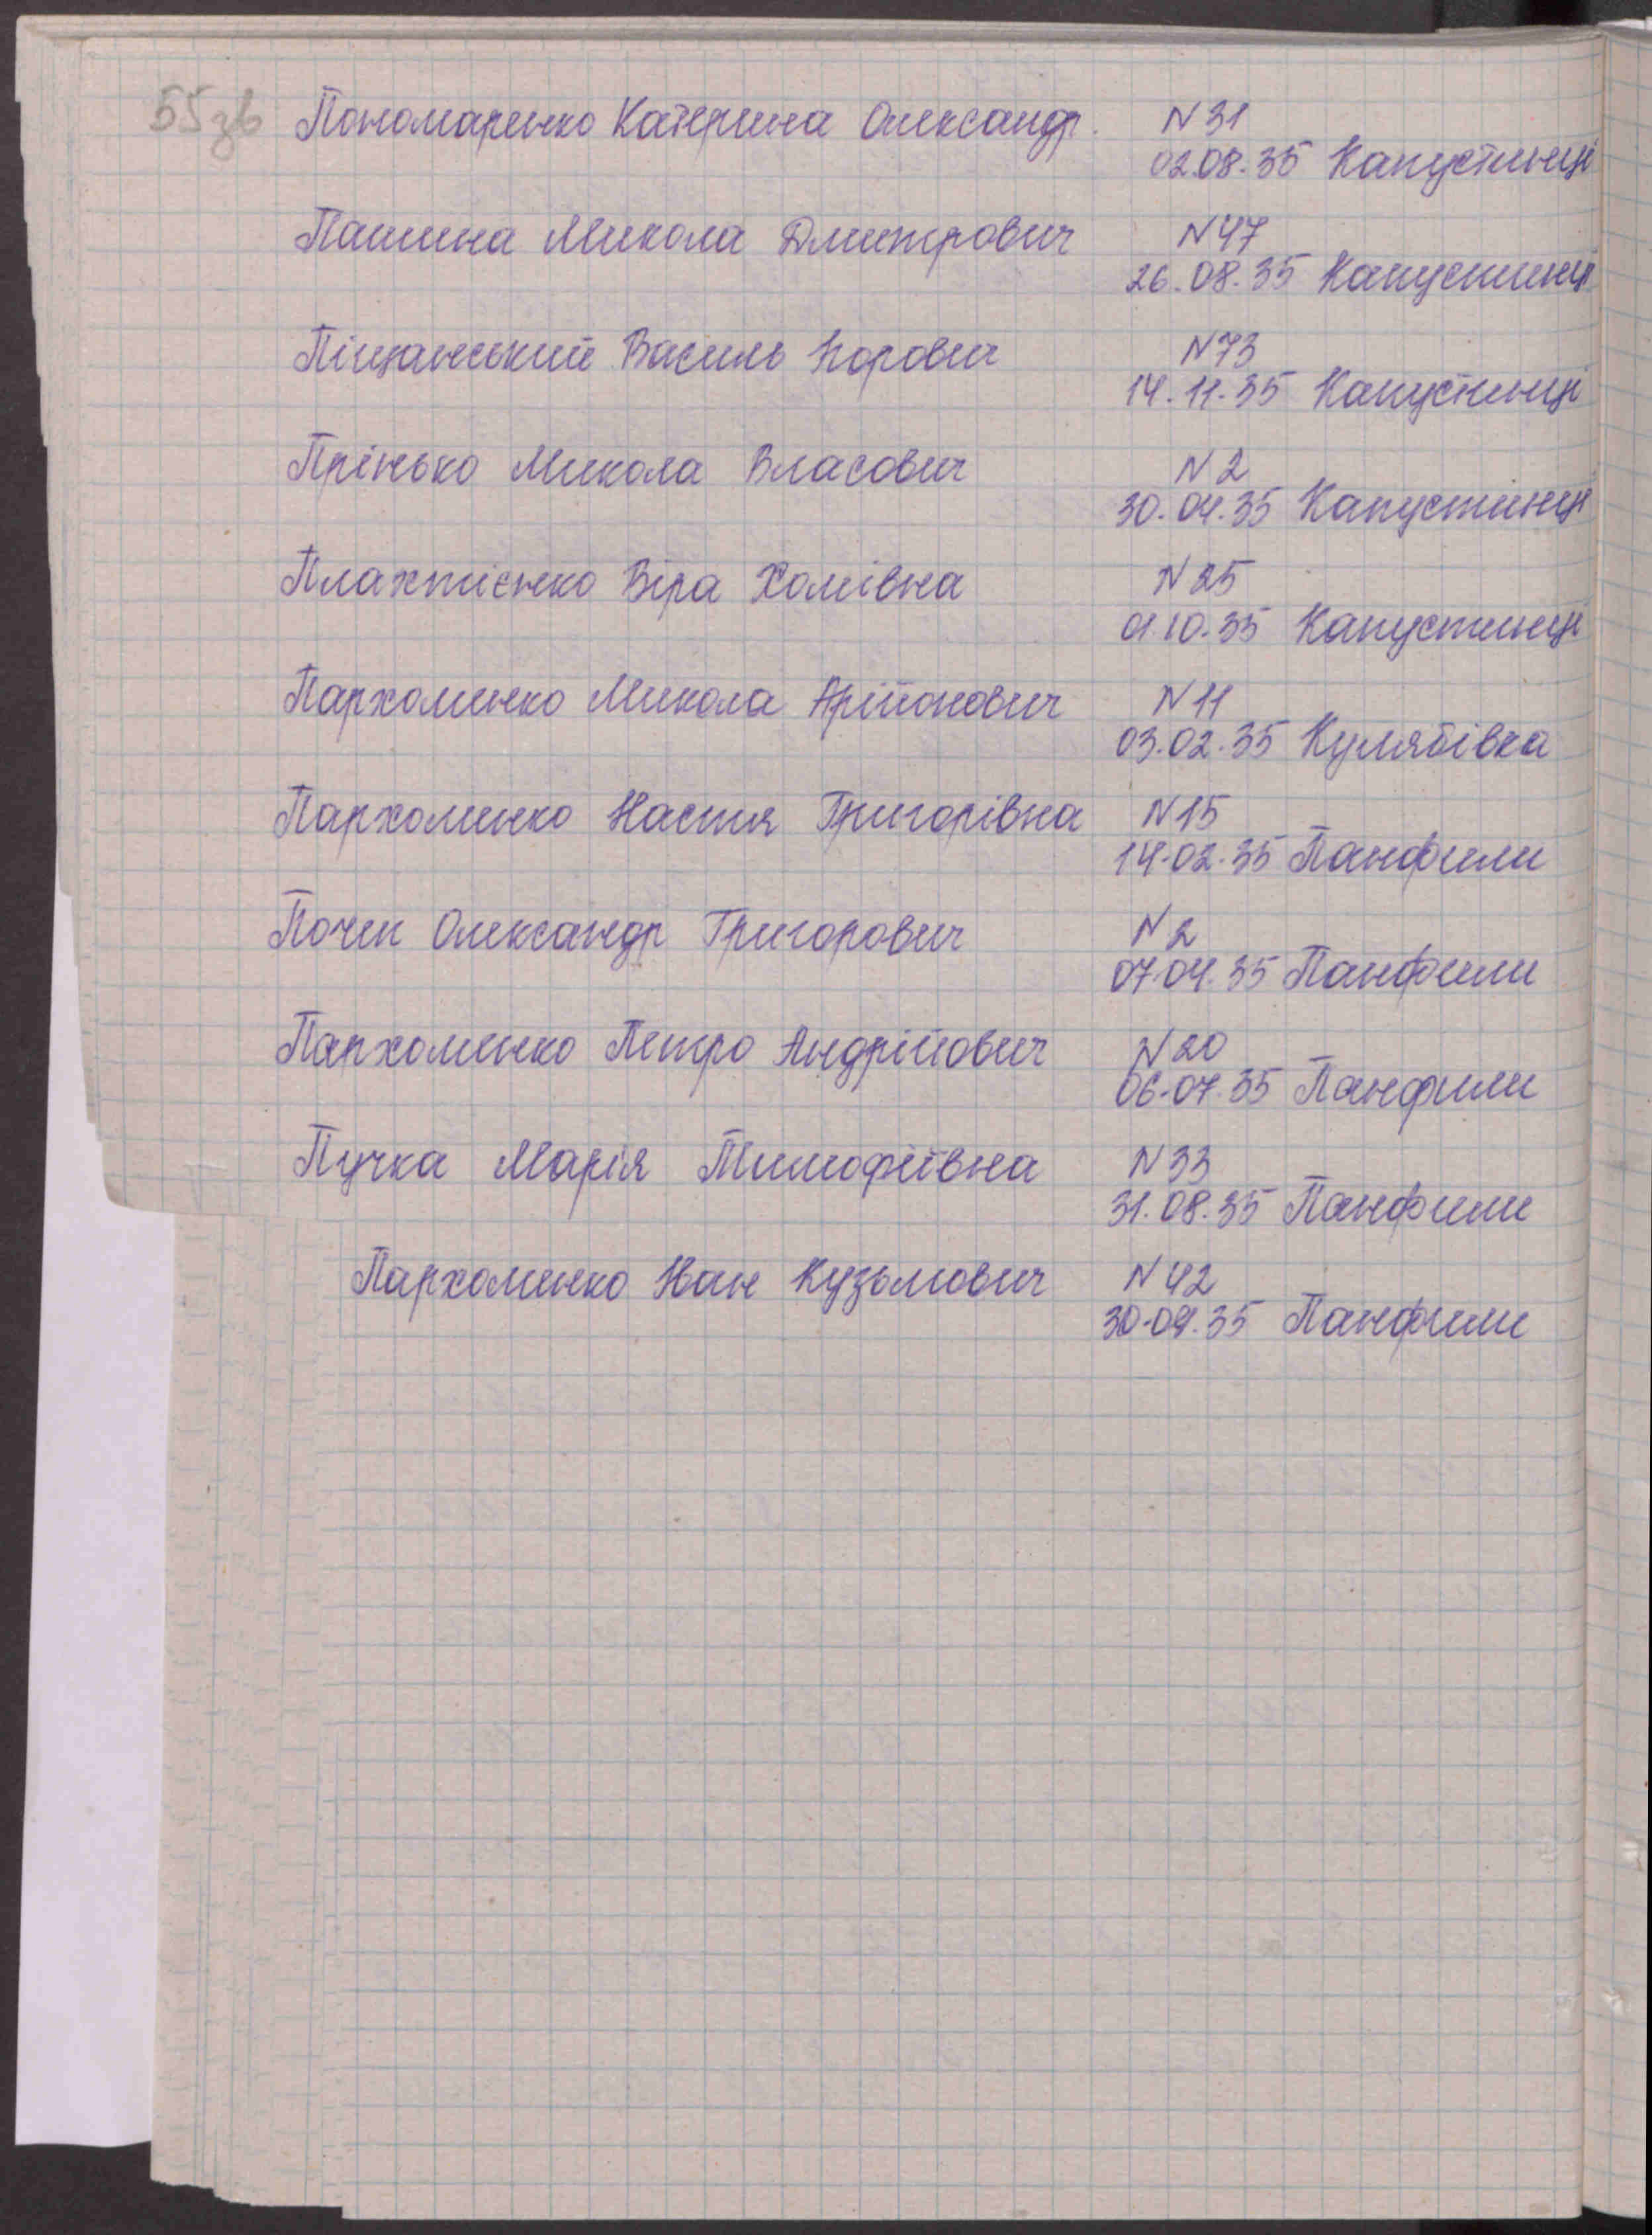 55зв Пономаренко Катерина Олександр. N 31
02.08.35 Капустинці
Пашина Микола Дмитрович N 47
26.08.35 Капустинці
Піщанський Василь Норович N 73
14.11.35 Капустинці
Прінько Микола Власович N 2
30.04.35 Капустинці
Плахтієнко Віра Хомівна N 25
01.10.35 Капустинці
Пархоменко Микола Арійонович N 11
03.02.35 Кулябівка
Пархоменко Настя Григорівна N 15
14.02.35 Панфили
Почеп Олександр Григорович N 2
07.04.35 Панфили
Пархоменко Петро Андрійович N 20
06.07.35 Панфили
Пучка Марія Тимофіївна N 33
31.08.35 Панфили
Пархоменко Іван Кузьмович N 42
30.09.35 Панфили